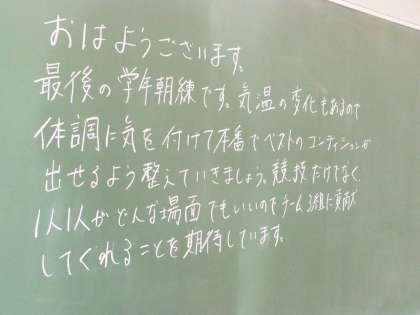 おはようございます。
最後の学年朝練です。気温の変化もあるので
体調に気を付けて本番でベストのコンディションが
出せるよう整えていきましょう。競技だけでなく、
1人1人がどんな場面でもいいのでチーム3組に貢献
してくれることを期待しています。